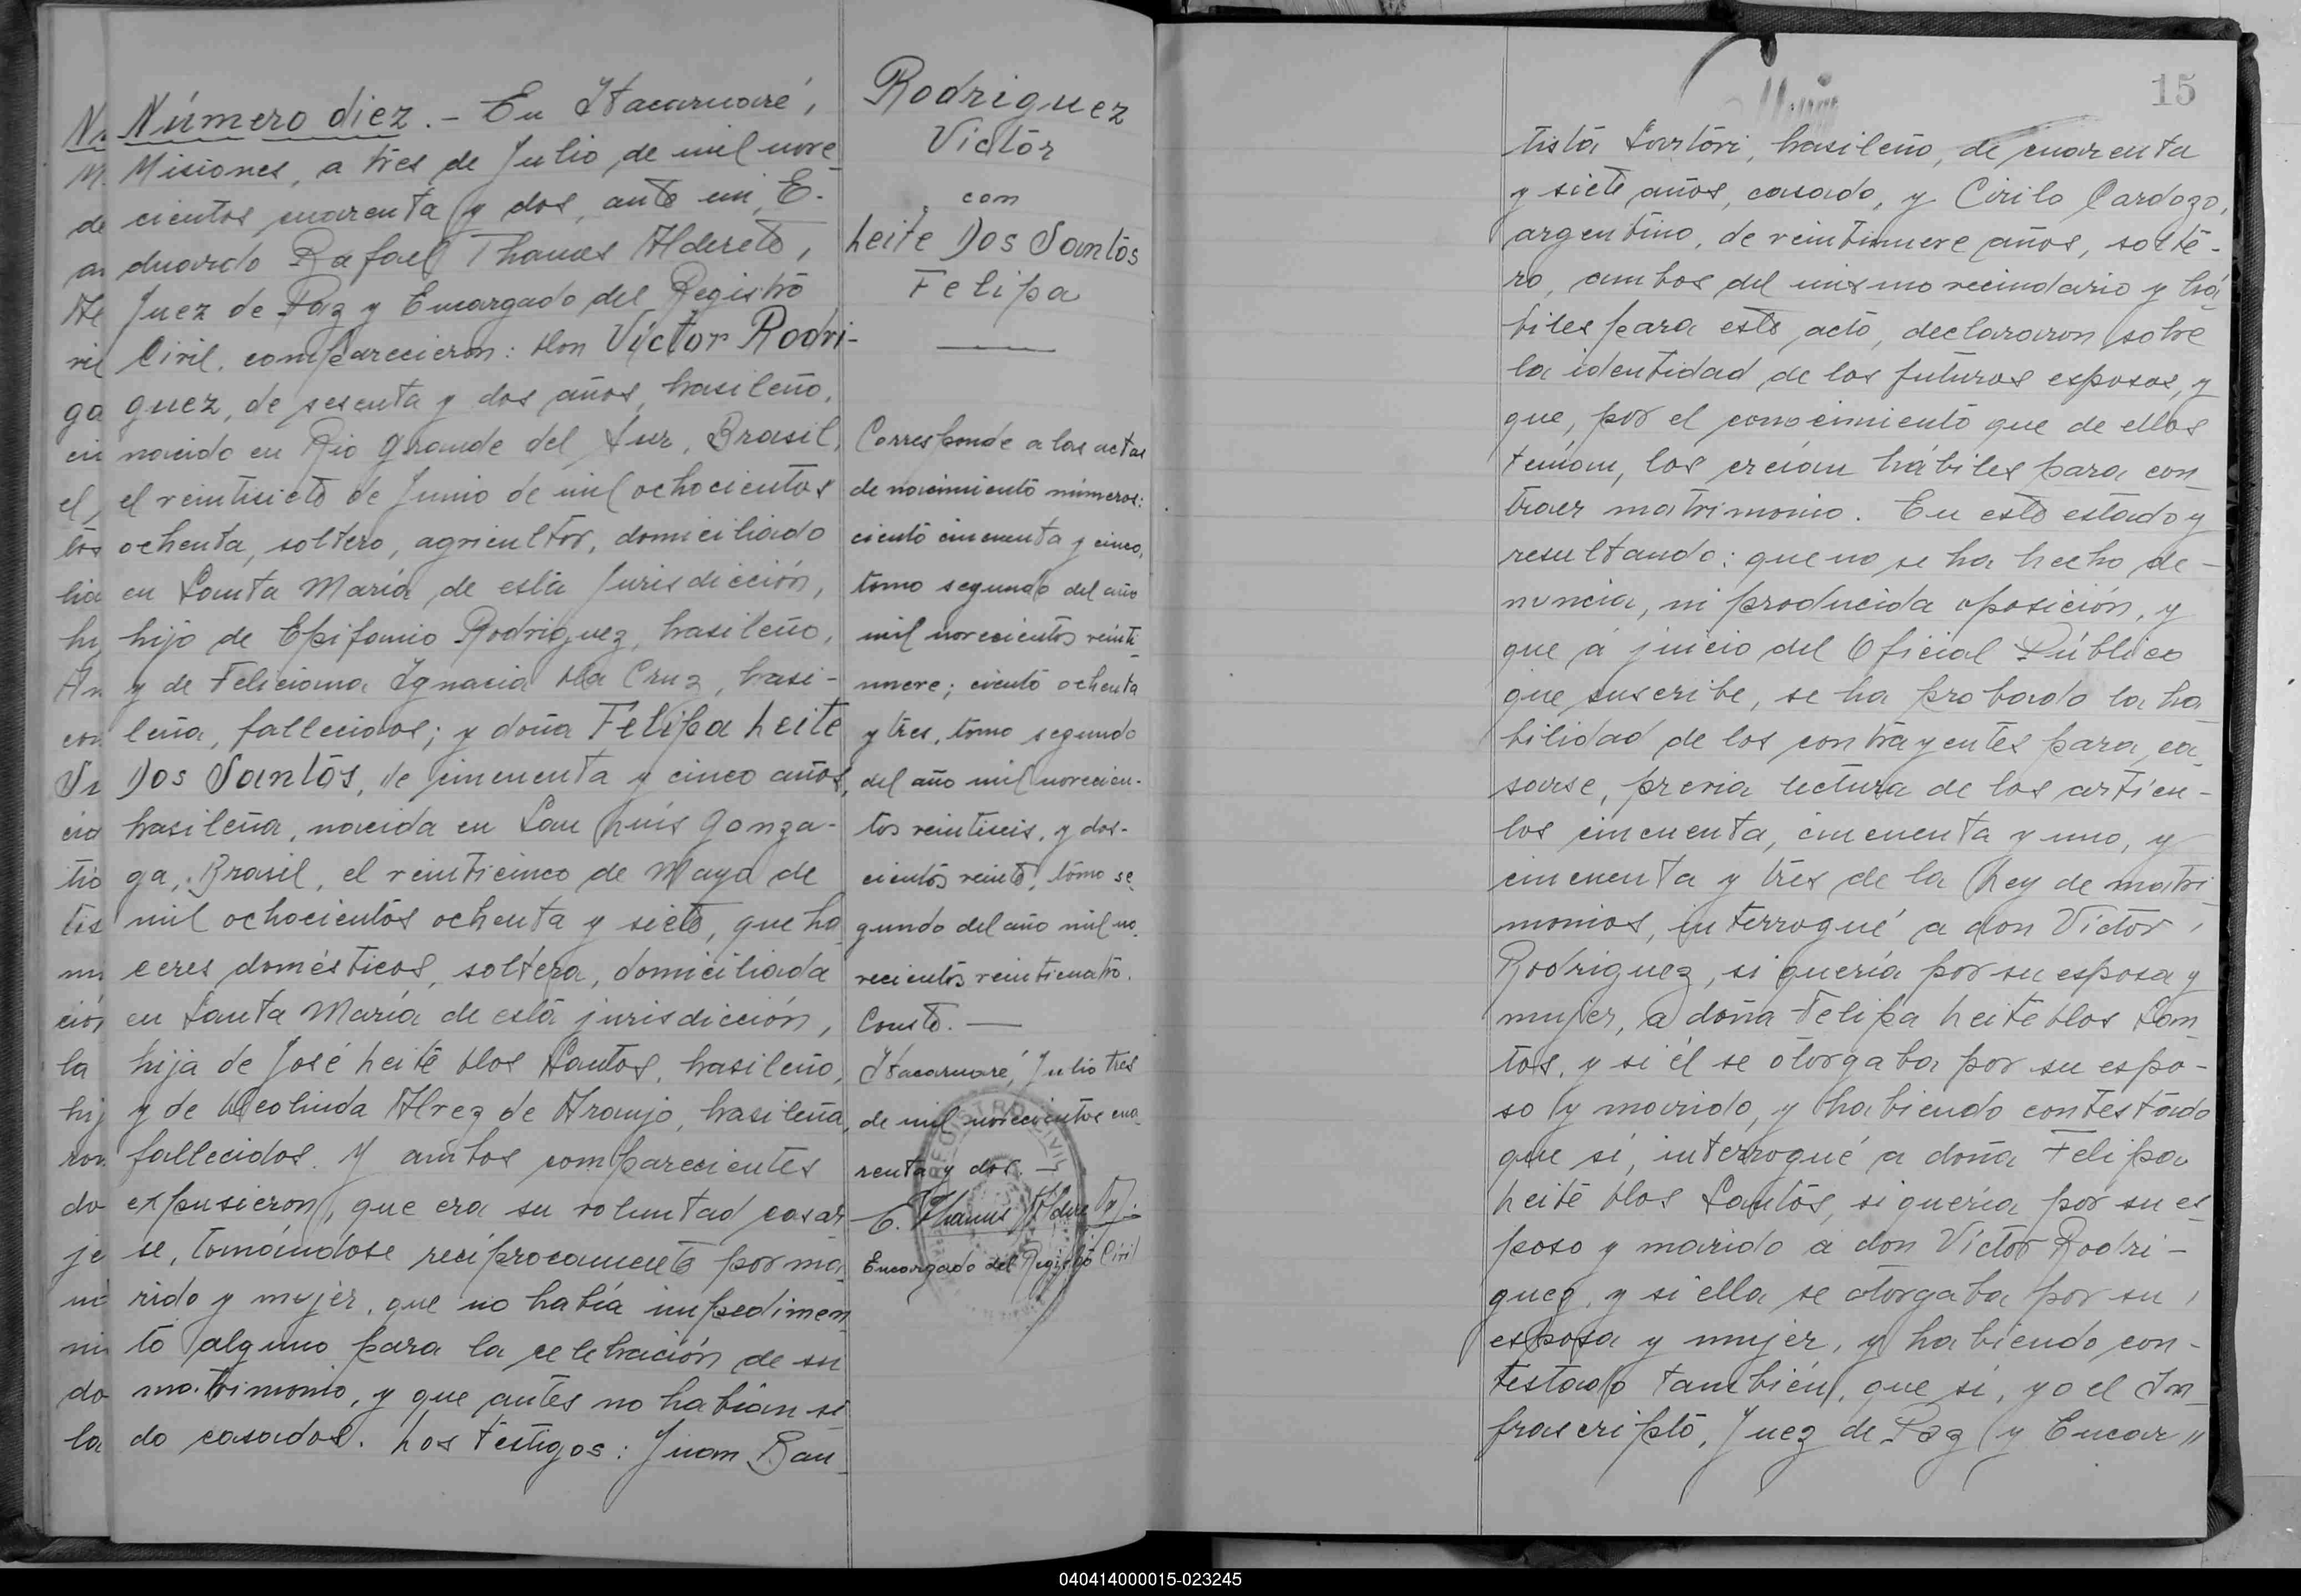 Número diez. - En Itacaruaré,
Misiones, a tres de Julio de mil nove
cientos cuarenta y dos, ante mi, E-
duardo Rafael Thames Alderete,
Juez de Paz y Encargado del Registro
Civil, comparecieron: Don Víctor Rodri-
guez, de sesenta y dos años, brasileño,
nacido en Rio Grande del Sur, Brasil,
el veintisiete de Junio de mil ochocientos
ochenta, soltero, agricultor, domiciliado
en Santa María de esta Jurisdicción,
hijo de Epifanio Rodriguez, brasileño,
y de Feliciana Ignacia Da Cruz, brasi-
leña, fallecidos; y doña Felipa Leite
Dos Santos, de cincuenta y cinco años,
brasileña, nacida en San Luis Gonza-
ga, Brasil, el veinticinco de Mayo de
mil ochocientos ochenta y siete, que ha
ceres domésticos, soltera, domiciliada
en Santa María de esta jurisdicción,
hija de José Leite Dos Santos, brasileño,
y de Deolinda Alvez de Araujo, brasileña,
fallecidos. Y ambos comparecientes
expusieron, que era su voluntad casar
se, tomándose recíprocamente por ma
rido y mujer, que no había impedimen
to alguno para la celebración de su
matrimonio, y que antes no habían si
do casados. Los testigos: Juan Bau
Rodriguez
Victor
con
Leite Dos Santos
Felipa
Corresponde a las actas
de nacimiento números:
ciento cincuenta y cinco,
tomo segundo del año
mil novecientos veinti-
nueve; ciento ochenta
y tres, tomo segundo
del año mil novecien-
tos veintiseis, y dos-
cientos veinte, tomo se
gundo del año mil no
vecientos veinticuatro.
Conste. —
Itacaruaré, Julio tres
de mil novecientos cua
renta y dos. —
E. Thames Alderete
Encargado del Registro Civil
REGISTRO CIVIL
15
tista Sartori, brasileño, de cuarenta
y siete años, casado, y Cirilo Cardozo,
argentino, de veintinueve años, solte-
ro, ambos del mismo vecindario y há
biles para este acto, declararon sobre
la identidad de los futuros esposos, y
que, por el conocimiento que de ellos
tenían, los creían hábiles para con
traer matrimonio. En este estado y
resultando: que no se ha hecho de-
nuncia, ni producida oposición, y
que á juicio del Oficial Público
que suscribe, se ha probado la ha
bilidad de los contrayentes para ca
sarse, previa lectura de los artícu-
los cincuenta, cincuenta y uno, y
cincuenta y tres de la Ley de matri
monios, interrogué a don Víctor
Rodriguez, si quería por su esposa y
mujer, a doña Felipa Leite Dos San
tos, y si él se otorgaba por su espo-
so y marido, y habiendo contestado
que sí, interrogué a doña Felipa
Leite Dos Santos, si quería por su es
poso y marido a don Víctor Rodri-
guez, y si ella se otorgaba por su
esposa y mujer, y habiendo con-
testado también, que sí, yo el In
frascripto, Juez de Paz y Encar "
040414000015-023245